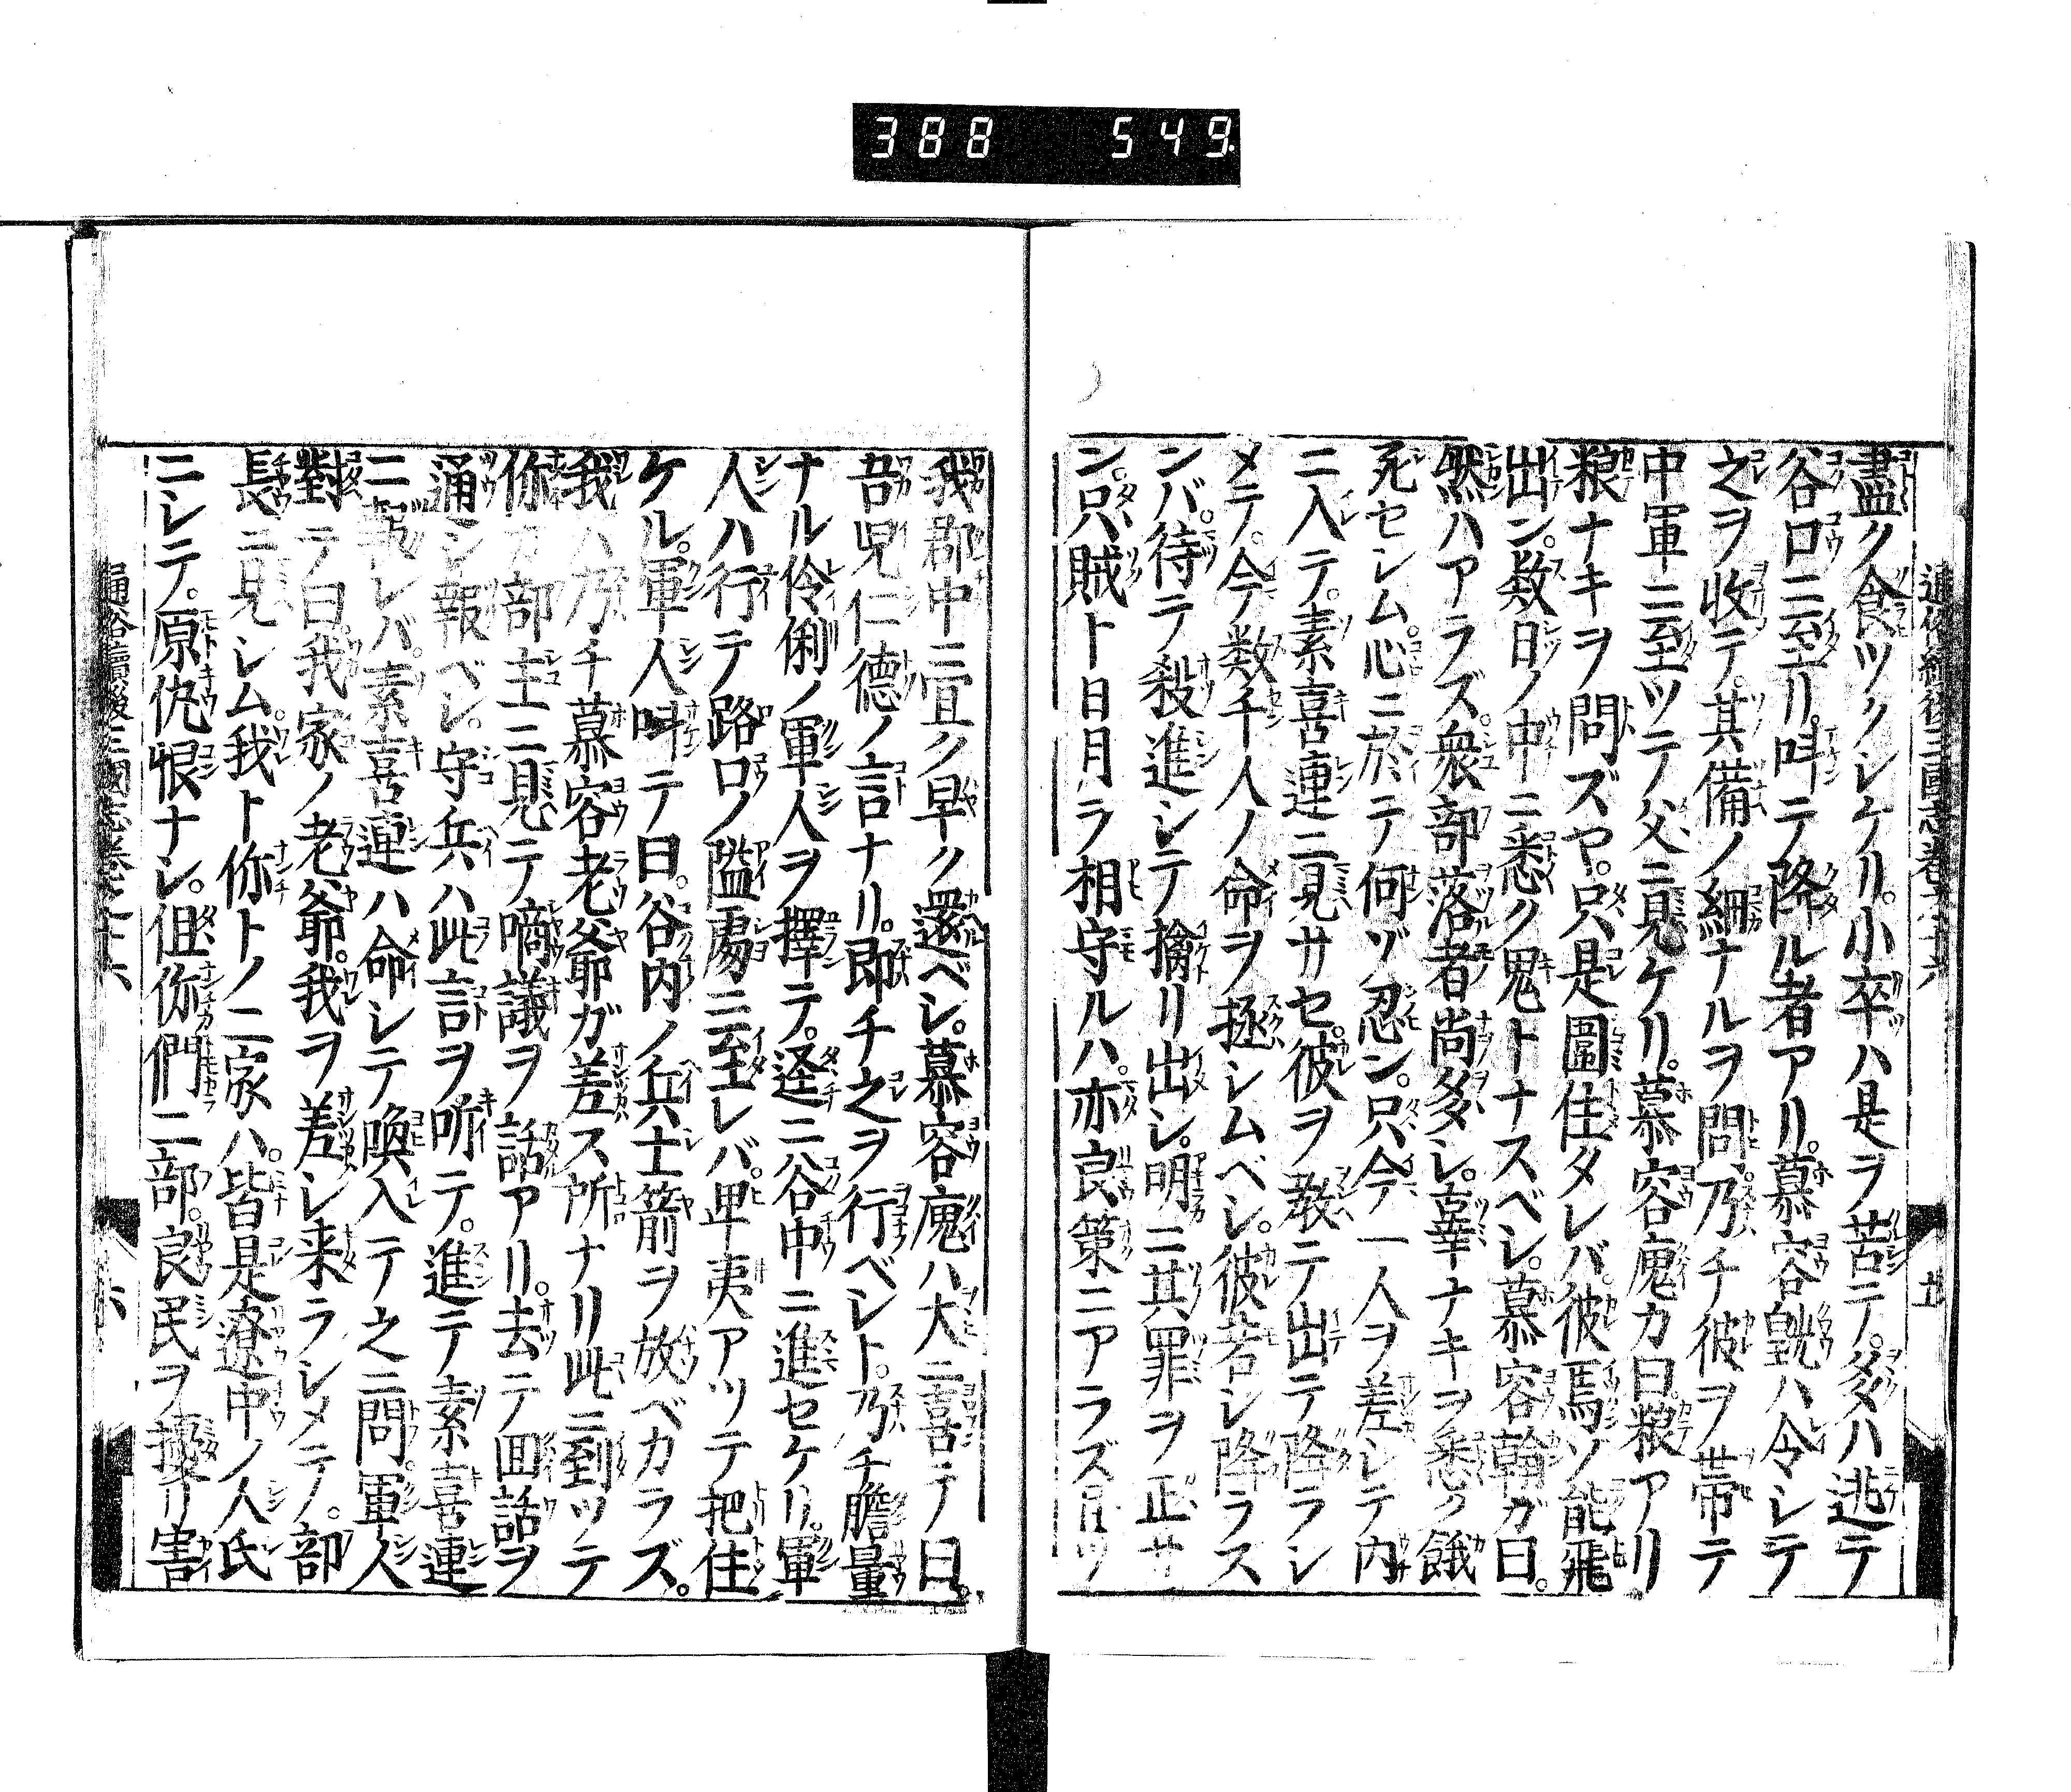 388 549.
通俗續後三國志卷之十六
五
盡ク食ツクシケリ。小卒ハ是ヲ苦テ。多ハ逃テ
谷口ニ至リ。呌テ降ル者アリ。慕容皝ハ令シテ
之ヲ收テ。其備ノ細ナルヲ問。乃チ彼ヲ帯テ
中軍ニ至ツテ父ニ見ケリ。慕容廆カ曰粮アリ
粮ナキヲ問ズヤ。只是圍住タレバ。彼焉ソ能飛
出ン。数日ノ中ニ悉ク鬼トナスベシ。慕容翰ガ曰。
然ハアラズ。衆部落者尚多シ。辜ナキヲ悉ク餓
死セシム。心ニ於テ何ゾ忍ン。只今一人ヲ差シテ内
ニ入テ。素喜連ニ見サセ。彼ヲ教テ出テ降ラシ
メテ。今数千人ノ命ヲ拯シムベシ。彼若シ降ラス
ンバ。待テ殺進シテ擒リ出シ。明ニ其罪ヲ正サ
ン。只賊ト日月ラ相守ルハ。亦良策ニアラズ且ツ
我郡中ニ冝ク早ク還ベシ。慕容廆ハ大ニ喜テ曰。
吾児仁德ノ言ナリ。即チ之ヲ行ベシト。乃チ膽量
ナル伶俐ノ軍人ヲ擇テ。逕ニ谷中ニ進セケリ。軍
人ハ行テ路口ノ隘處ニ至レバ。卑夷アツテ把住
ケル。軍人呌テ曰。谷内ノ兵士箭ヲ放ベカラズ。
我ハ乃チ慕容老爺ガ差ス所ナリ此ニ到ツテ
你カ部主ニ見テ啇議ヲ話アリ。去テ囬話ヲ
通シ報ベシ。守兵ハ此言ヲ听テ。進テ素喜連
ニ報レバ。素喜連ハ命シテ喚入テ之ニ問。軍人
對テ曰我家ノ老爺。我ヲ差シ来ラシメテ。部
長ニ見シム。我ト你トノ二家ハ。皆是遼中ノ人氏
ニシテ。原仇恨ナシ。伹你們二部。良民ヲ擾リ害
通俗續後三國志卷之十六
六